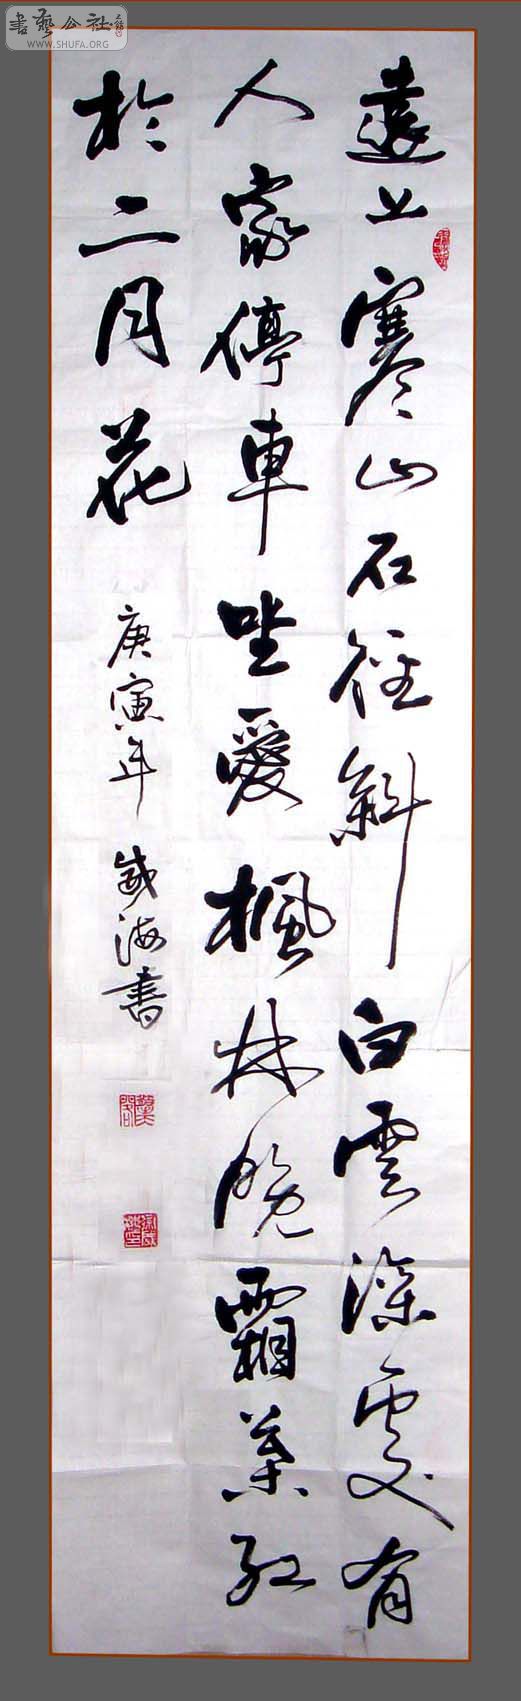 書藝公社
WWW.SHUFA.ORG
遠上寒山石徑斜白雲深處有
人家停車坐愛楓林晚霜葉紅
於二月花
庚寅年
海書